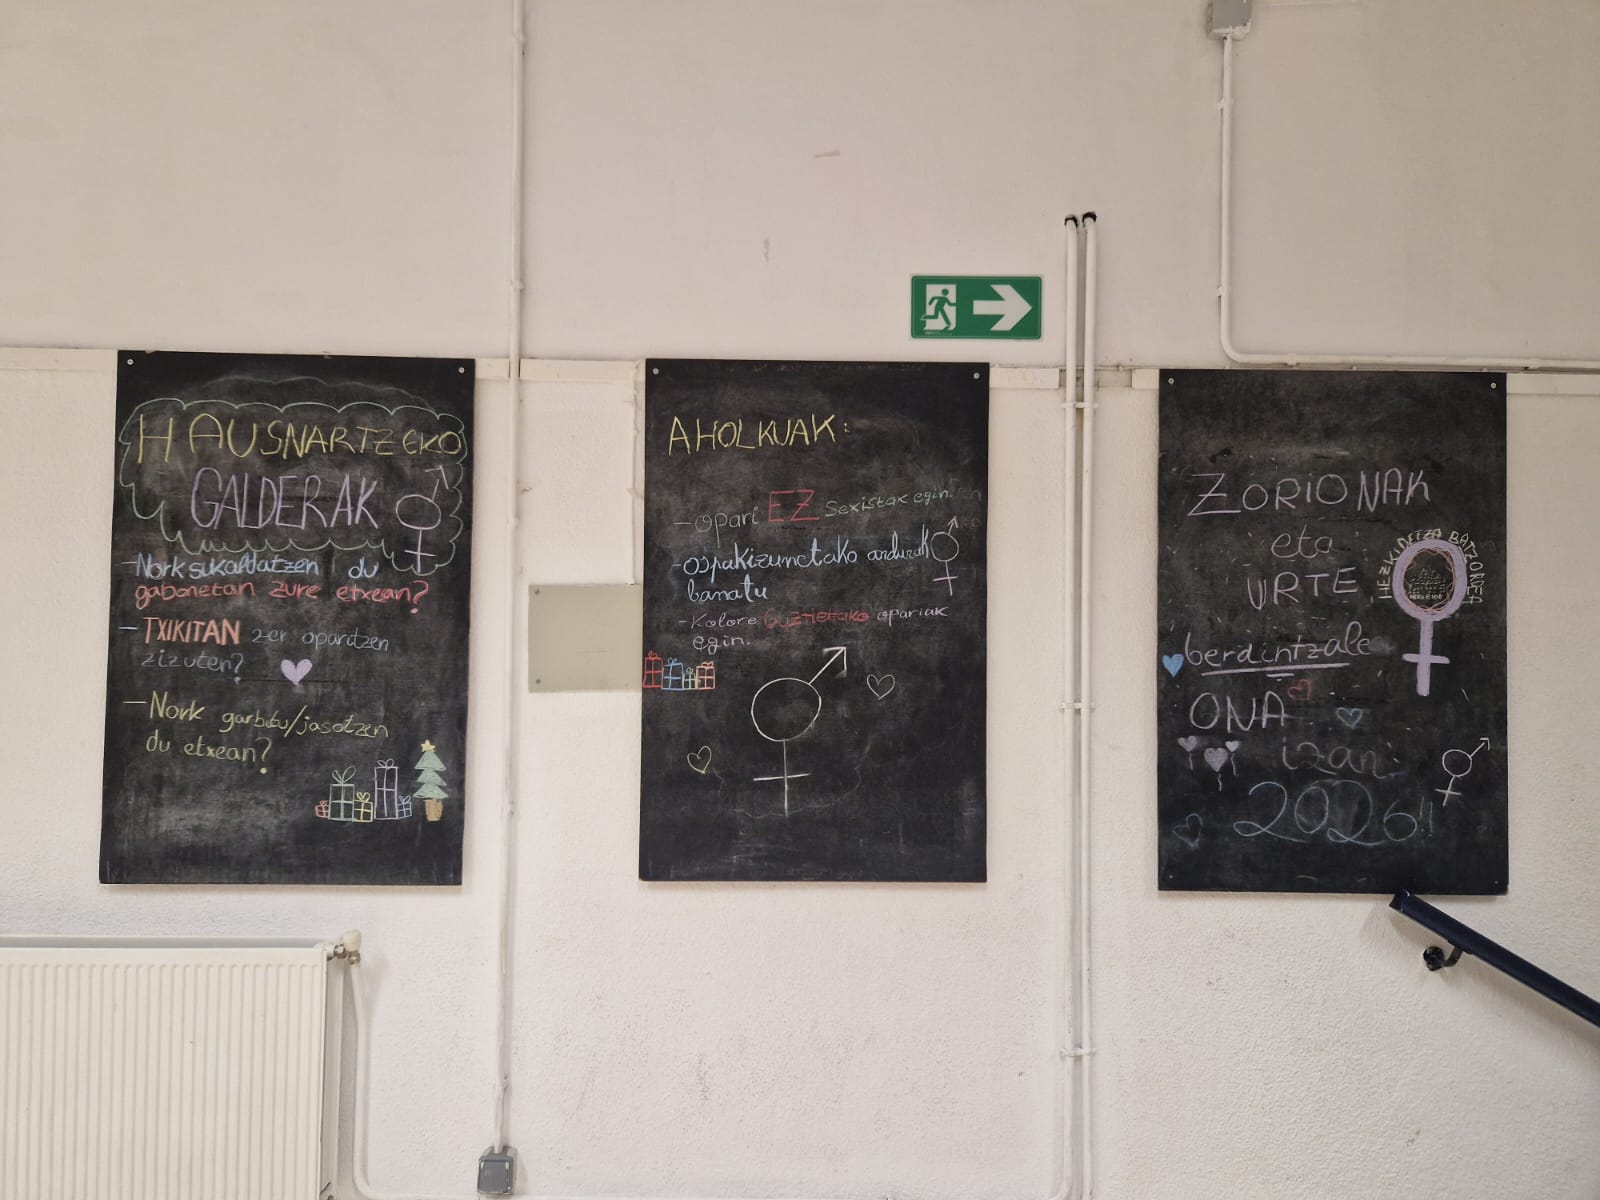 HAUSNARTZEKO
GALDERAK
- Nork sukaldatzen du
gabonetan zure etxean?
- TXIKITAN zer oparitzen
zizuten?
- Nork garbitu/jasotzen
du etxean?
AHOLKUAK:
- Opari EZ Sexistak egin.
- Ospakizunetako ardurak
banatu
- Kolore Guztietako opariak
egin.
ZORIONAK
eta
URTE
berdintzale
ONA
izan
2026!!
HEZKIDETZA BATZORDEA